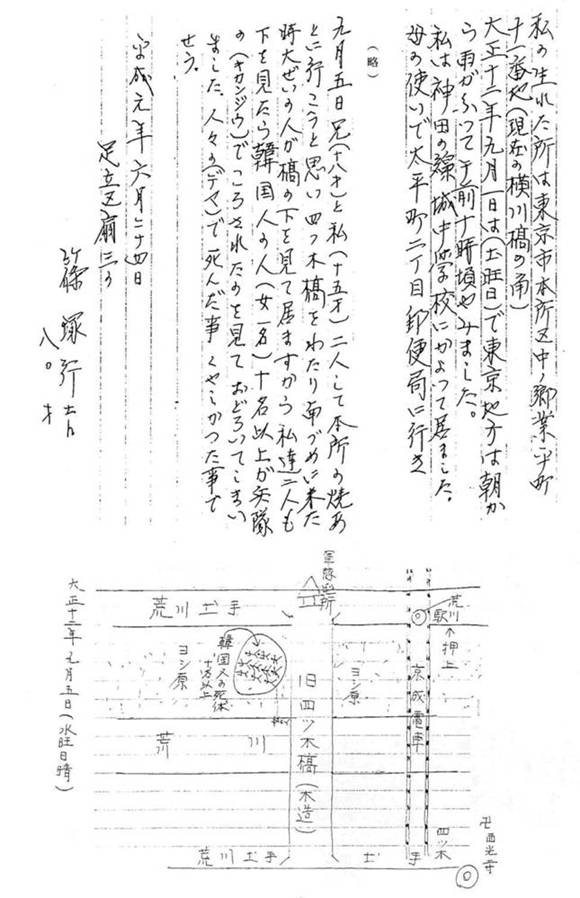 私の生れた所は東京市本所区中ノ郷業平町
十一番地(現在の横川橋の角)
大正十二年九月一日は(土旺日)で東京地方は朝か
ら雨がふつて午前十時頃やみました。
私は神田の錦城中学校にかよつて居ました。
母の使いで太平町二丁目郵便局に行き
(略)
九月五日兄(十八才)と私(十五才)二人して本所の焼あ
とに行こうと思い四ツ木橋をわたり南づめに来た
時大ぜいの人が橋の下を見て居ますから私達二人も
下を見たら韓国人の人(女一名)十名以上が兵隊
の(キカンジウ)でころされたのを見ておどろいてしまい
ました、人々の(デマ)で死んだ事くやしかつた事で
せう。
平成元年六月二十四日
足立区扇二の
篠塚行吉
八〇才
荒川土手
荒川駅
押上
京成電車
ヨシ原
旧四ツ木橋(木造)
韓国人の死体
十名以上
ヨシ原
荒川
荒川土手
土手
四ツ木
卍西光寺
大正十二年九月五日(水旺日晴)